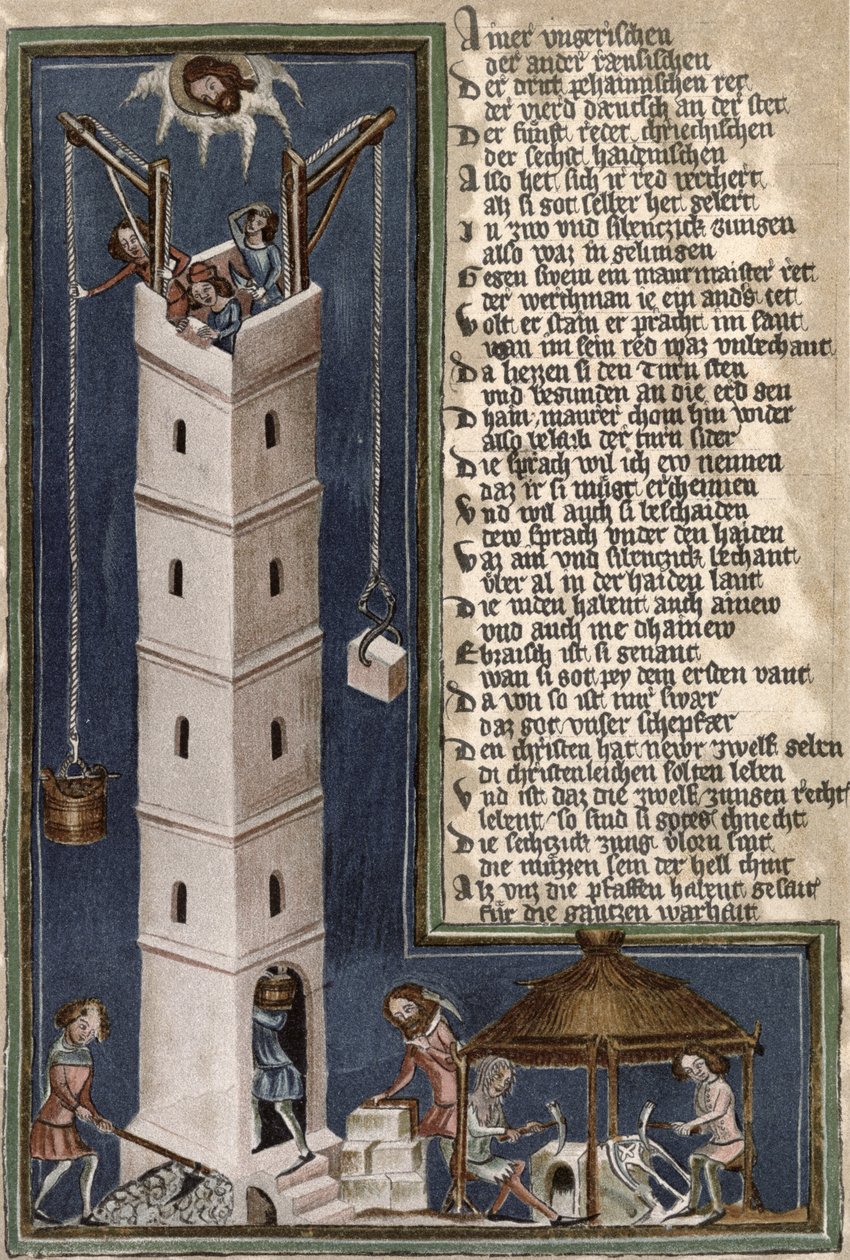 Ainer vngerischen
der ander ræusischen
Der dritt pehaimischen ret
der vierd dæutsch an der stet
Der fünft redet chriechischen
der sechst haidenischen
Also het sich ir red verchert
alz si got selber het gelert
In zwo und sibenczick zungen
also waz in gelungen
Gegen swem ein maurmaister ret
der werchman ie ein anders tet
Wolt er stain er pracht im sant
wan im sein red waz vnbechant
Da liezzen si den turn sten
vnd begunden an die erd gen
Dhain maurer chom hin wider
also belaib der turn sider
Die sprach wil ich ew nennen
daz ir si mügt erchennen
Vnd wil auch si beschaiden
dew sprach vnder den haiden
Waz ain vnd sibenczick bechant
vber al in der haiden lant
Die iuden habent auch ainew
vnd auch me dhainew
Ebraisch ist si genant
wan si got pey dem ersten vant
Da von so ist mir swær
daz got vnser schephær
Den christen hat newr zwelf geben
di christenleichen solten leben
Vnd ist daz die zwelf zungen recht
lebent so sind si gotes chnecht
Die sechczick zung vberal sint
die müzzen sein der hell chint
Alz vnz die pfaffen habent gesait
für die gantzen warhait